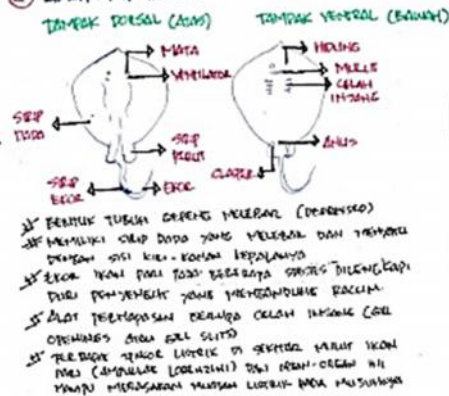 TAMPAK DORSAL (ATAS)
TAMPAK VENTRAL (BAWAH)
MATA
VENTILATOR
SIRIP
DADA
SIRIP
PERUT
SIRIP
EKOR
EKOR
HIDUNG
MULUT
CELAH
INSANG
ANUS
CLASPER
BENTUK TUBUH GEPENG MELEBAR (DEPRESSED)
MEMILIKI SIRIP DADA YANG MELEBAR DAN MENYATU
DENGAN SISI KIRI-KANAN KEPALANYA
EKOR IKAN PARI PADA BEBERAPA SPESIES DILENGKAPI
DURI PENYENGAT YANG MENGANDUNG RACUN
ALAT PERNAPASAN BERUPA CELAH INSANG (GILL
OPENINGS ATAU GILL SLITS)
TERDAPAT SENSOR LISTRIK DI SEKITAR MULUT IKAN
PARI (AMPULLAE LORENZINI) DAN ORGAN-ORGAN INI
MAMPU MERASAKAN MUATAN LISTRIK PADA MUSUHNYA